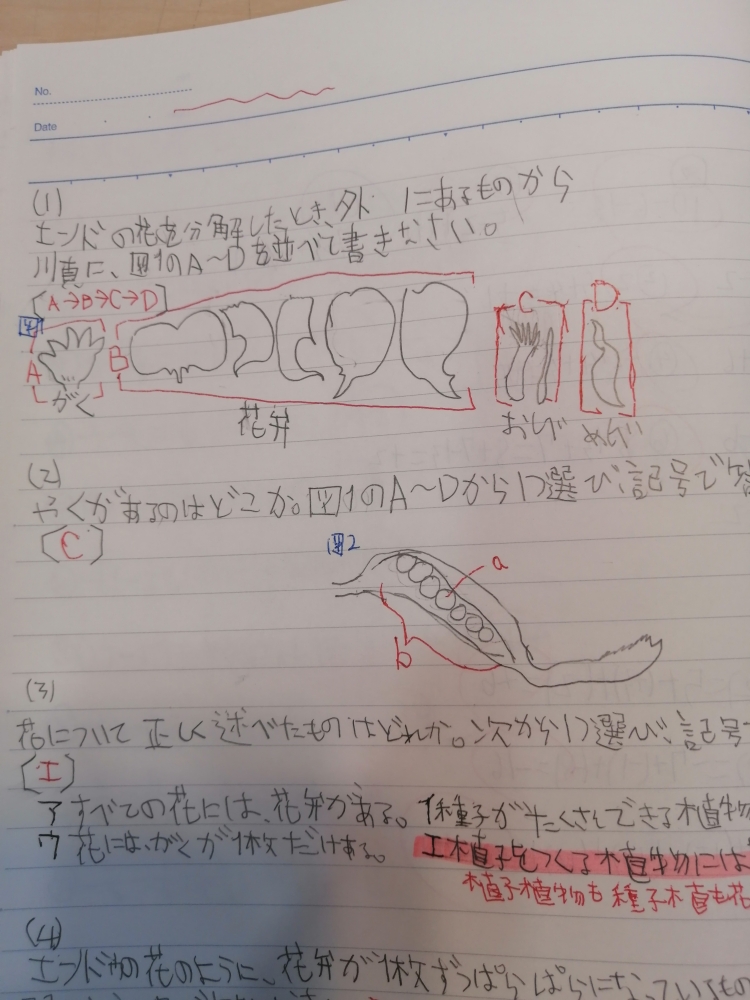 No.
Date
(1)
エンドの花を分解したとき、外にあるものから
順に、図1のA〜Dを並べて書きなさい。
[A→B→C→D]
図1
A
B
C
D
がく
花弁
おしべ
めしべ
(2)
やくがあるのはどこか。図1のA〜Dから1つ選び、記号で
[C]
図2
a
b
(3)
花について正しく述べたものはどれか。次から1つ選び、記号
[エ]
アすべての花には、花弁がある。 種子がたくさんできる植物
ウ 花には、がくが1枚だけある。 エ 子をつくる植物には
植物も種子
(4)
エンドウの花のように、花弁が1枚ずつばらばらに